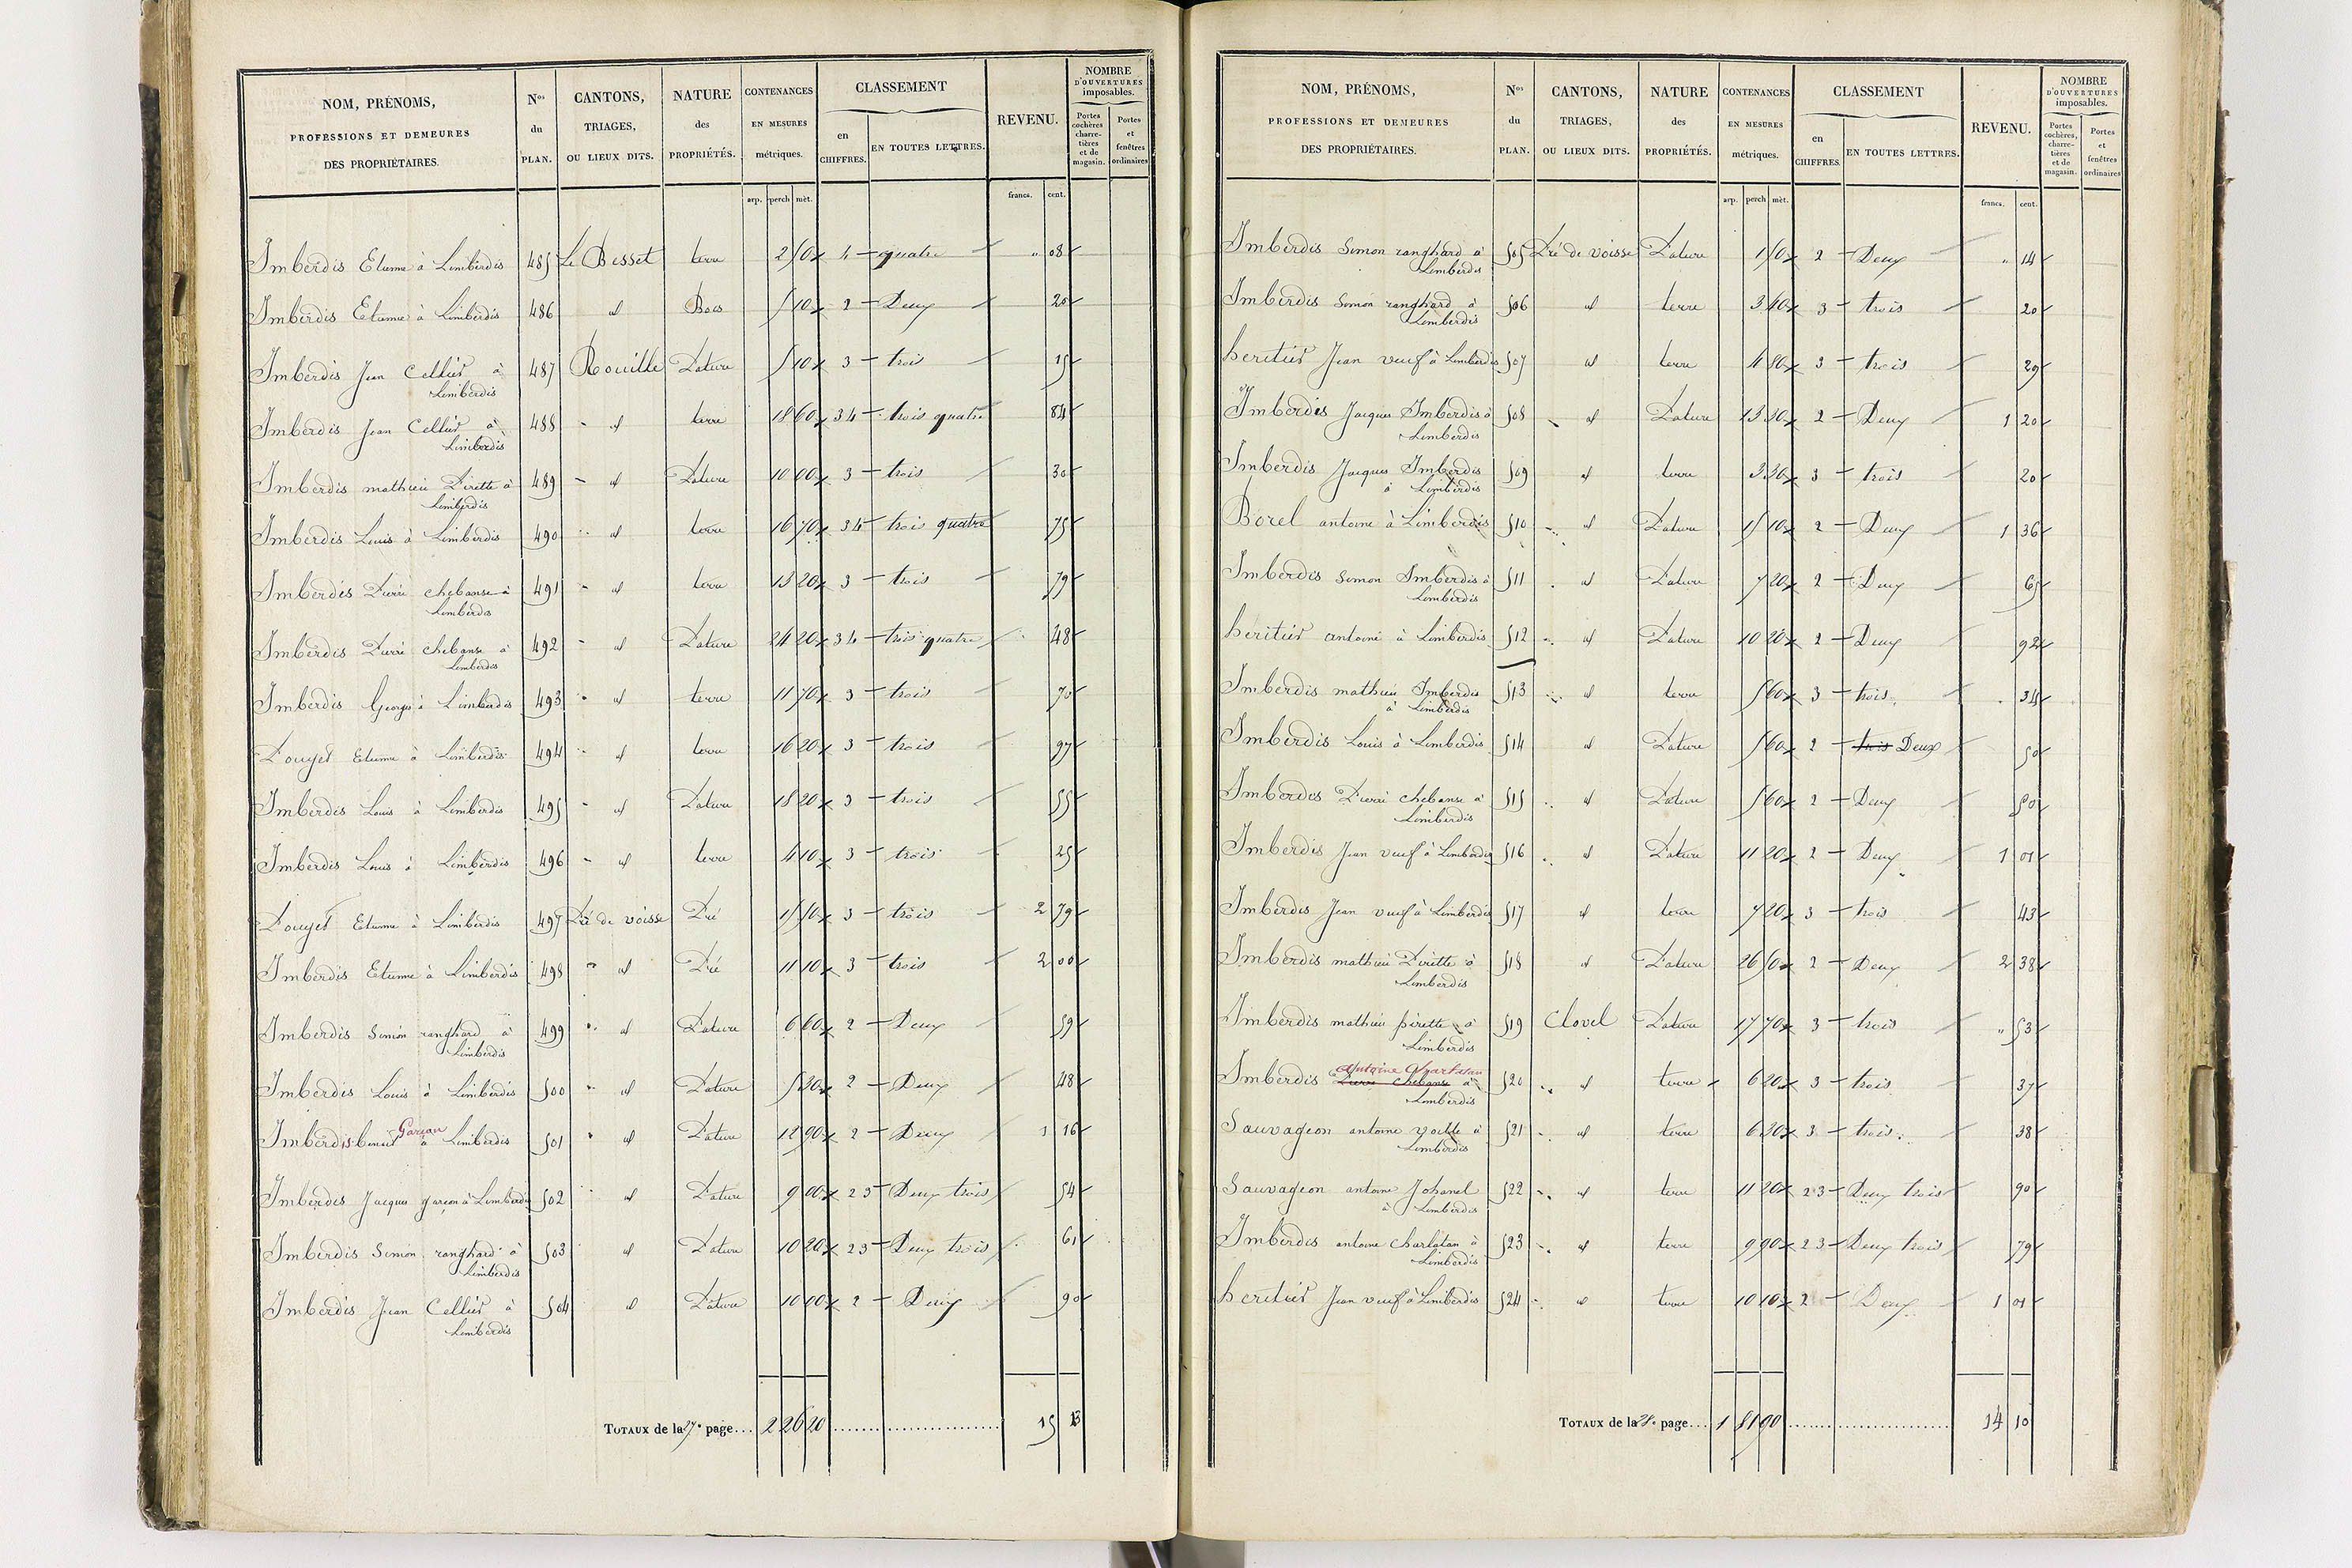 NOM, PRÉNOMS, PROFESSIONS ET DEMEURES DES PROPRIÉTAIRES.
Nos du PLAN.
CANTONS, TRIAGES, OU LIEUX DITS.
NATURE des PROPRIÉTÉS.
CONTENANCES EN MESURES métriques.
CLASSEMENT
en CHIFFRES.
EN TOUTES LETTRES.
REVENU.
NOMBRE D'OUVERTURES imposables.
Portes cochères charretières et de magasin.
Portes et fenêtres ordinaires
arp. perch mèt. francs. cent.
Imberdis Etienne à Limberdis 485 Le Besset terre 2 50 4 quatre " 08
Imberdis Etienne à Limberdis 486 id Bois 5 10 2 Deux 20
Imberdis Jean Cellier à Limberdis 487 Rouille Pature 5 10 3 trois 15
Imberdis Jean Cellier à Limberdis 488 id terre 18 60 3 4 trois quatre 84
Imberdis mathieu Pirette à Limberdis 489 id Pature 10 00 3 trois 30
Imberdis Louis à Limberdis 490 id terre 16 70 3 4 trois quatre 75
Imberdis Pierre chebanse à Limberdis 491 id terre 13 20 3 trois 79
Imberdis Pierre chebanse à Limberdis 492 id Pature 24 20 3 4 trois quatre 48
Imberdis George à Limberdis 493 id terre 11 70 3 trois 70
Pouyet Etienne à Limberdis 494 id terre 16 20 3 trois 97
Imberdis Louis à Limberdis 495 id Pature 18 20 3 trois 55
Imberdis Louis à Limberdis 496 id terre 4 10 3 trois 25
Pouyet Etienne à Limberdis 497 Pré de voisse Pré 15 50 3 trois 2 79
Imberdis Etienne à Limberdis 498 id Pré 11 10 3 trois 2 00
Imberdis Simon ranghard à Limberdis 499 id Pature 6 60 2 Deux 59
Imberdis Louis à Limberdis 500 id Pature 5 30 2 Deux 48
Imberdis benoit Garçon à Limberdis 501 id Pature 12 90 2 Deux 1 16
Imberdis Jacques garçon à Limberdis 502 id Pature 9 00 2 3 Deux trois 54
Imberdis Simon ranghard à Limberdis 503 id Pature 10 20 2 3 Deux trois 61
Imberdis Jean Cellier à Limberdis 504 id Pature 10 00 2 Deux 90
TOTAUX de la 27e page... 2 26 20 15 13
NOM, PRÉNOMS, PROFESSIONS ET DEMEURES DES PROPRIÉTAIRES.
Nos du PLAN.
CANTONS, TRIAGES, OU LIEUX DITS.
NATURE des PROPRIÉTÉS.
CONTENANCES EN MESURES métriques.
CLASSEMENT
en CHIFFRES.
EN TOUTES LETTRES.
REVENU.
NOMBRE D'OUVERTURES imposables.
Portes cochères, charretières et de magasin.
Portes et fenêtres ordinaires
arp. perch mèt. francs. cent.
Imberdis Simon ranghard à Limberdis 505 Pré de voisse Pature 1 50 2 Deux " 14
Imberdis Simon ranghard à Limberdis 506 id terre 3 40 3 trois 20
heritier Jean veuf à Limberdis 507 id terre 4 80 3 trois 29
Imberdis Jacques Imberdis à Limberdis 508 id Pature 13 30 2 Deux 1 20
Imberdis Jacques Imberdis à Limberdis 509 id terre 3 30 3 trois 20
Borel antoine à Limberdis 510 id Pature 15 10 2 Deux 1 36
Imberdis Simon Imberdis à Limberdis 511 id Pature 7 20 2 Deux 65
heritier antoine à Limberdis 512 id Pature 10 20 2 Deux 92
Imberdis mathieu Imberdis à Limberdis 513 id terre 5 60 3 trois 34
Imberdis Louis à Limberdis 514 id Pature 5 60 2 trois Deux 50
Imberdis Pierre chebanse à Limberdis 515 id Pature 5 60 2 Deux 50
Imberdis Jean veuf à Limberdis 516 id Pature 11 20 2 Deux 1 01
Imberdis Jean veuf à Limberdis 517 id terre 7 20 3 trois 43
Imberdis mathieu Pirette à Limberdis 518 id Pature 26 50 2 Deux 2 38
Imberdis mathieu pirette à Limberdis 519 Clovel Pature 17 70 3 trois " 53
Imberdis Pierre chebanse Antoine Charlatan à Limberdis 520 id terre 6 20 3 trois 37
Sauvageon antoine à Limberdis 521 id terre 6 30 3 trois 38
Sauvageon antoine Johanel à Limberdis 522 id terre 11 20 2 3 Deux trois 90
Imberdis antoine charlatan à Limberdis 523 id terre 9 90 2 3 Deux trois 79
heritier Jean veuf à Limberdis 524 id terre 10 10 2 Deux 1 01
TOTAUX de la 28e page... 1 81 90 14 10